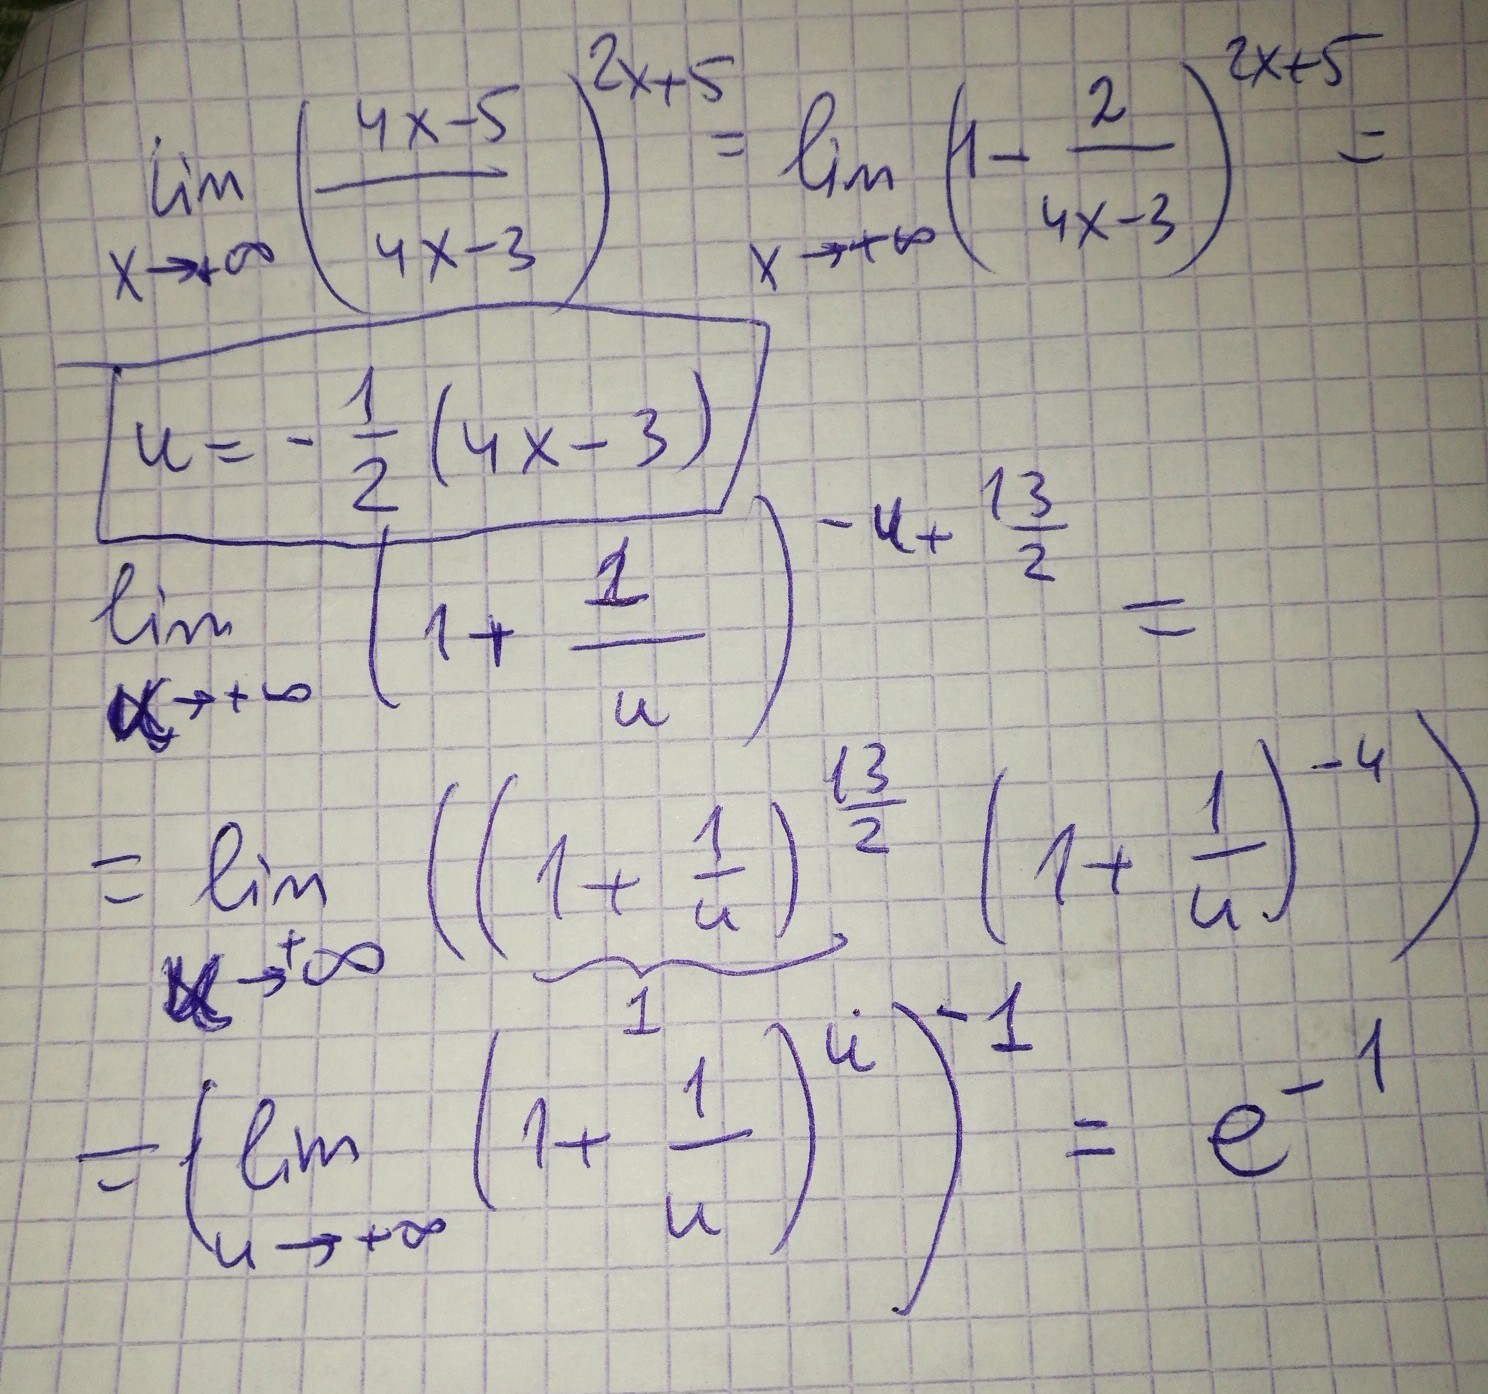 lim x→+∞ ((4x-5)/(4x-3))^(2x+5) = lim x→+∞ (1 - 2/(4x-3))^(2x+5) =
u = -1/2 (4x-3)
lim →+∞ (1 + 1/u)^(-u + 13/2) =
= lim →+∞ ((1 + 1/u)^(13/2) (1 + 1/u)^(-u))
1
= (lim u→+∞ (1 + 1/u)^u)^(-1) = e^(-1)